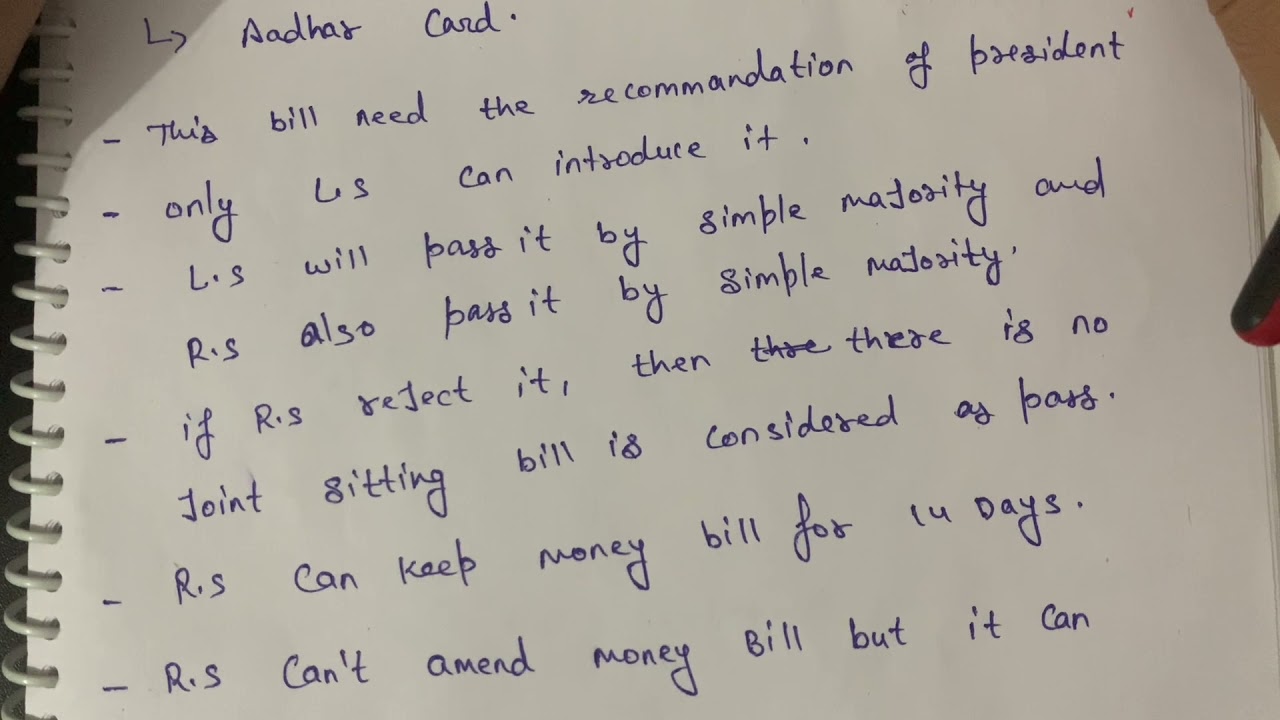 ↳ Aadhar Card.
- This bill need the recommandation of president
- only L.S can introduce it.
- L.S will pass it by simple majority and
R.S also pass it by simple majority.
- if R.S reject it, then thre there is no
Joint sitting bill is considered as pass.
- R.S can keep money bill for 14 Days.
- R.S can't amend money Bill but it can